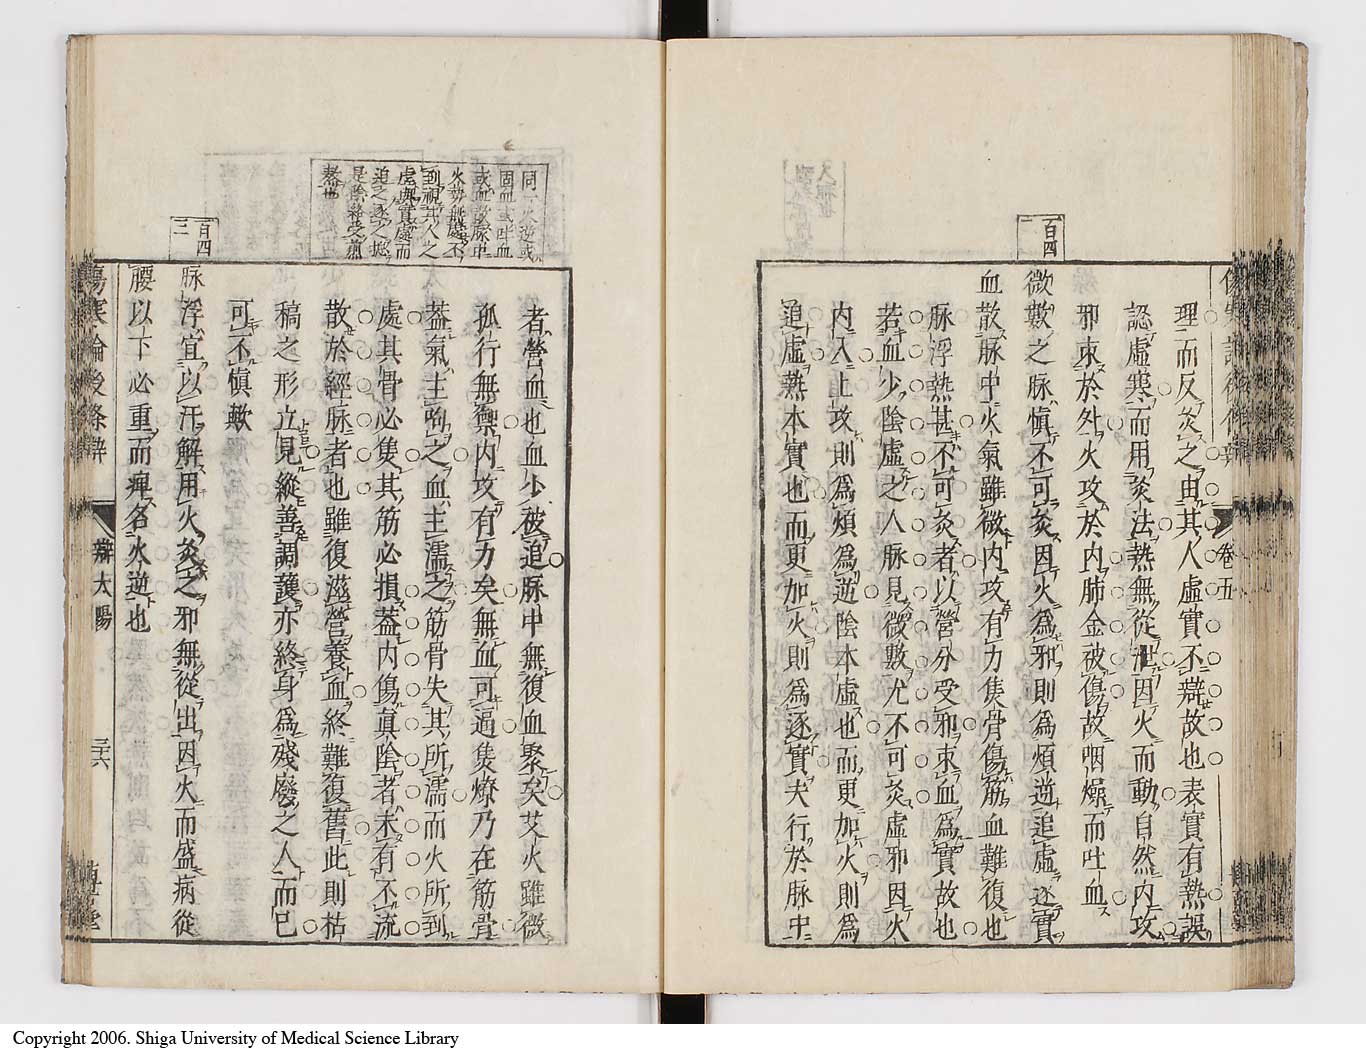 百四
二
理而反灸之由其人虛實不辨故也表實有熱誤
認虛寒而用灸法熱無從泄因火而動自然內攻
邪束於外火攻於內肺金被傷故咽燥而吐血
微數之脉慎不可灸因火為邪則為煩逆追虛逐實
血散脉中火氣雖微內攻有力焦骨傷筋血難復也
脉浮熱甚不可灸者以營分受邪束血為實故也
若血少陰虛之人脉見微數尤不可灸虛邪因火
內入上攻則為煩為逆陰本虛也而更加火則為
追虛熱本實也而更加火則為逐實夫行於脉中
卷五
同一火逆或
因血或吐血
或血散脉中
火勢無處不
到視其人之
虛與實處而
追之逐之總
是陰絡受煎
熬也
者營血也血少被追脉中無復血聚矣艾火雖微
孤行無禦內攻有力矣無血可逼焦燎乃在筋骨
葢氣主呴之血主濡之筋骨失其所濡而火所到
處其骨必焦其筋必損葢內傷眞陰者未有不流
散於經脉者也雖復滋營養血終難復舊此則枯
稿之形立見縱善調護亦終身為殘廢之人而已
可不愼歟
百四
三
脉浮宜以汗解用火灸之邪無從出因火而盛病從
腰以下必重而痺名火逆也
傷寒論後條辨
辯太陽
三六
Copyright 2006. Shiga University of Medical Science Library